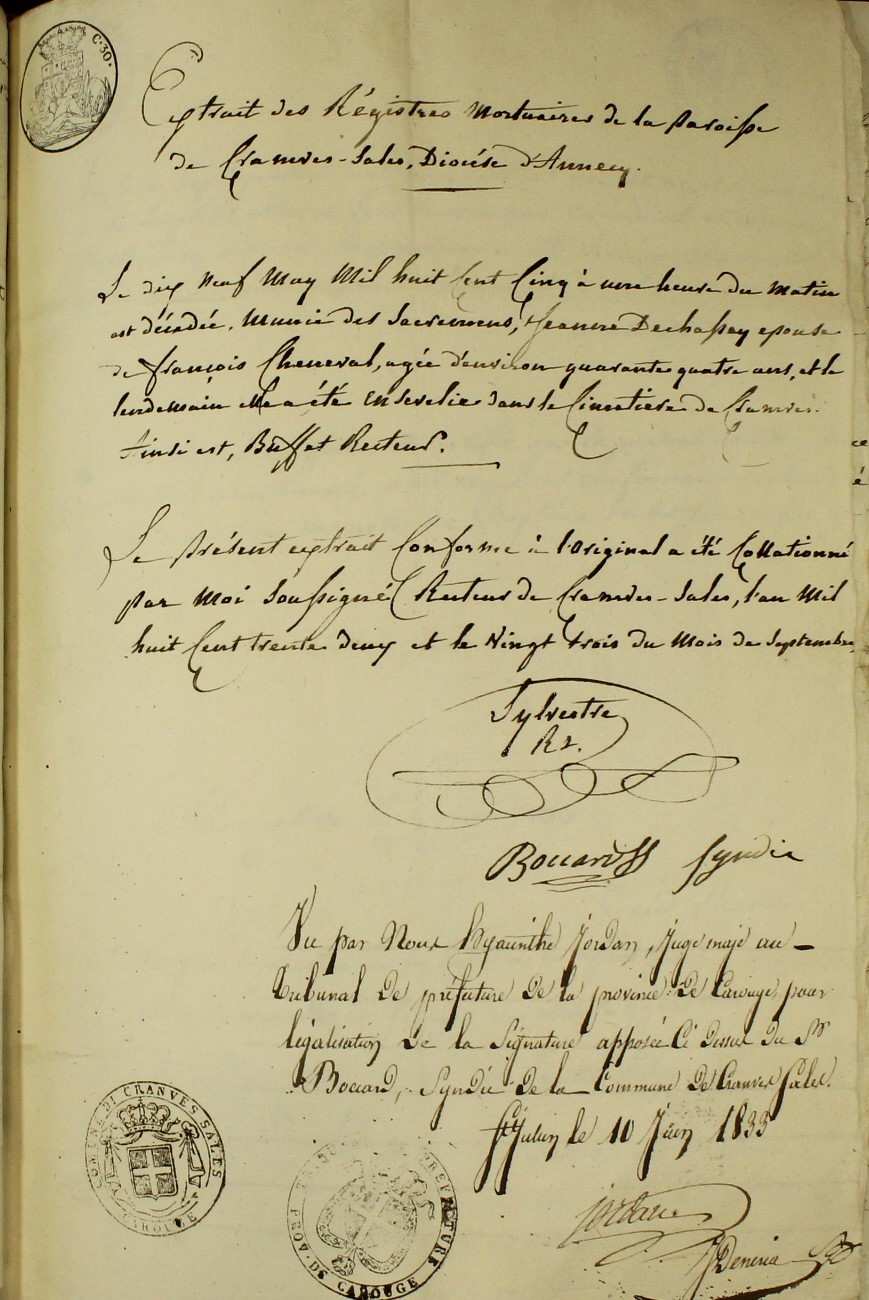 C. 30.
Extrait des Régistres Mortuaires de la paroisse
de Cranves-Sales, Diocése d'Annecy.
Le dix neuf May Mil huit Cent Cinq à une heure du matin
est décédée, Munie des Sacremens, Jeanne Dechassay epouse
de françois Cheneval, agée d'environ quarante quatre ans, et le
lendemain elle a été ensevelie dans le Cimetiére de Cranves.
Ainsi est, Buffet Recteur.
Le présent extrait Conforme à l'original a été Collationné
par Moi Soussigné Recteur de Cranves-Sales, l'an Mil
huit Cent trente deux et le Vingt trois du Mois de Septembre
Sylvestre
Rr.
Boccard Syndic
Vu par Nous hyacinthe Jordan, Juge maje au
Tribunal De préfecture De la province De Carouge, pour
légalisation De la Signature apposée Ci Dessus Du Sr
Boccard, Syndic De la Commune De Cranves Sales.
St Julien le 10 Juin 1833
Jordan
COMUNE DI CRANVES SALES
CAROUGE
PREFECTURE
PROV. DE CAROUGE
ce
é